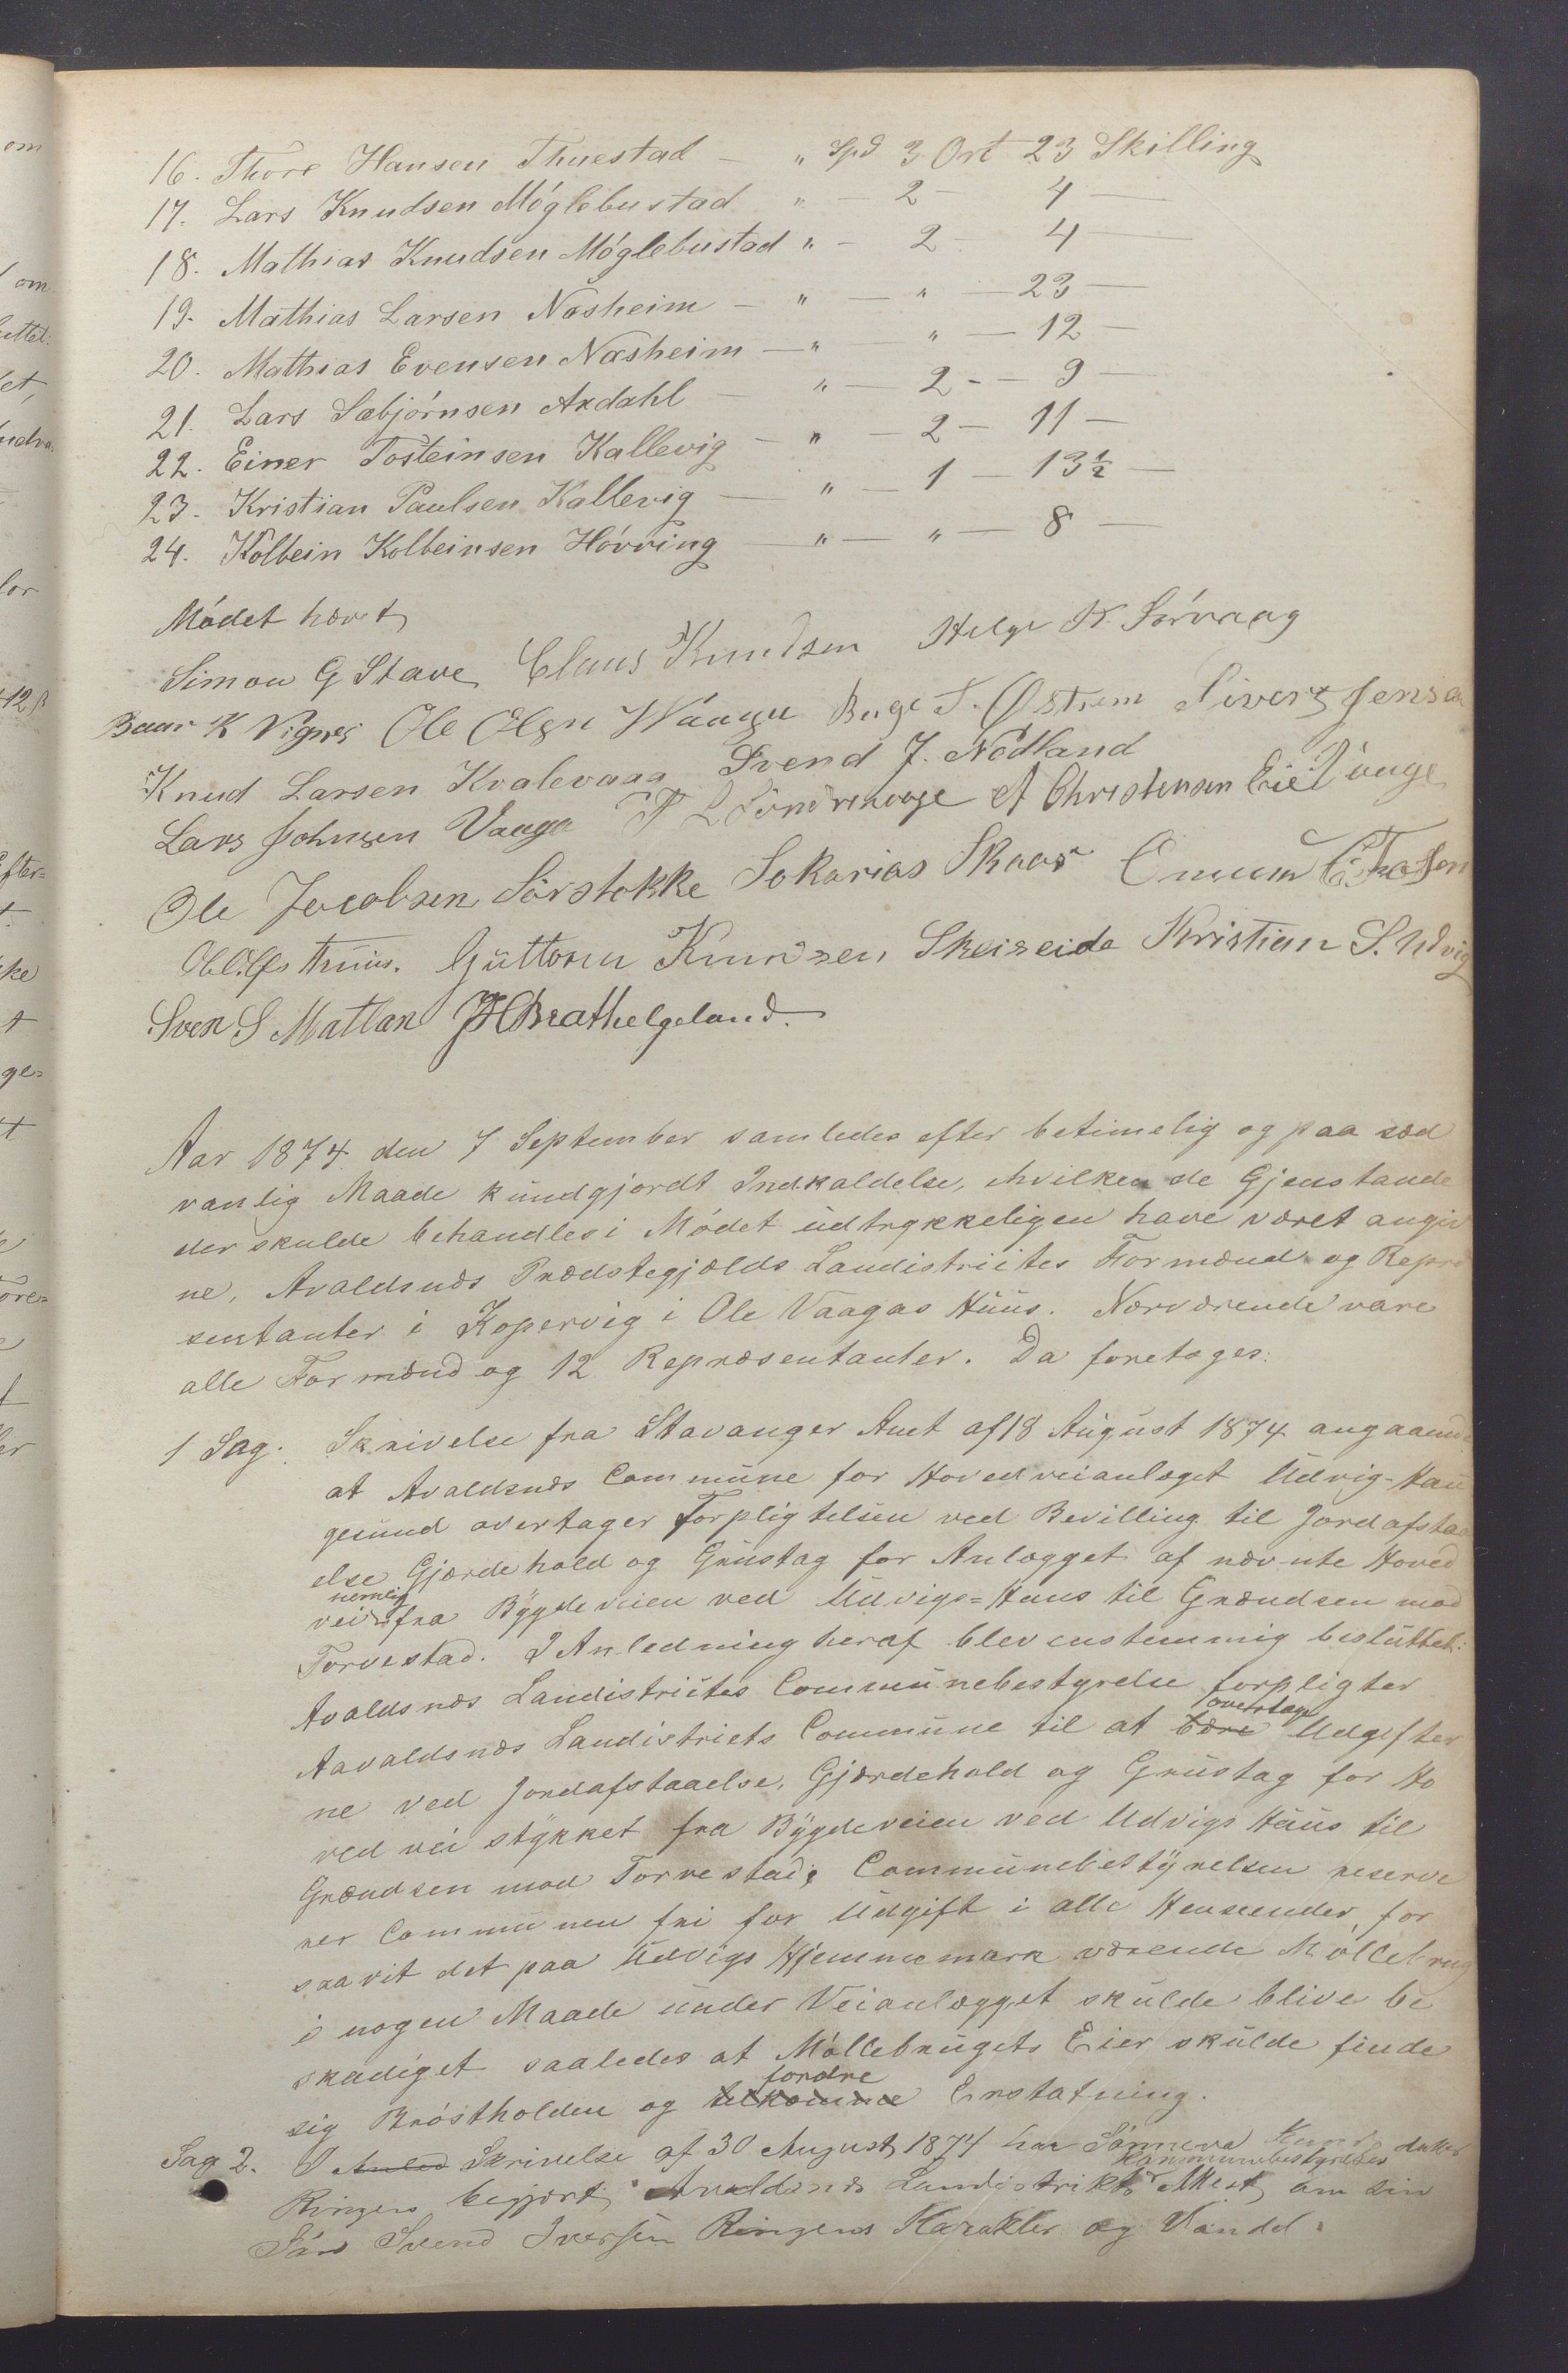 16. Thore Hansen Thuestad — " Spd 3 Ort 23 Skilling
17. Lars Knudsen Móglebustad " — 2 — 4 —
18. Mathias Knudsen Móglebustad " — 2 — 4 —
19. Mathias Larsen Næsheim — " — " — 23 —
20. Mathias Evensen Næsheim — " — " — 12 —
21. Lars Sæbjórnsen Axdahl — " — 2 — 9 —
22. Einer Tosteinsen Kallevig — " — 2 — 11 —
23. Kristian Paulsen Kallevig — " — 1 — 13½ —
24. Kolbein Kolbeinsen Hóvring — " — " — 8 —
Módet hævet
Simon G Stave Claus Knudsen Helge K. Sórvaag
K Vignes Ole Olsen Waage Østrem Sivert Jensen
Knud Larsen Kvalevaag Svend J. Nódland
Lars Johnsen Vaaga A Christensen
Ole Jacobsen Sórstokke Sokarias Skaar
Guttorm Knudsen Skeiseide Kristian S. Udvig
Sven S Matland Brathelgeland.
Aar 1874 den 7 September samledes efter betimelig og paa sæd
vanlig Maade kundgjordt Indkaldelse, i hvilken de Gjenstande
der skulde behandles i Módet udtrykkeligen have været angiv
ne, Avaldsnæs Prædstegjælds Landistriktes Formænd og Repræ
sentanter i Kopervig i Ole Vaagas Huus. Nærværende vare
alle Formænd og 12 Repræsentanter. Da foretoges:
1 Sag. Skrivelse fra Stavanger Amt af 18 August 1874 angaaende
at Avaldsnæs Commune for Hovedveianlæget Udvig-Hau
gesund overtager Forpligtelsen ved Bevilling til Jordafstaa
else Gjærdehold og Grustag for Anlægget af nævnte Hoved
vei nemlig fra Bygdeveien ved Udvigs=Huus til Grændsen mod
Torvestad. I Anledning heraf blev enstemmig besluttet:
Avaldsnæs Landistriktes Communebestyrelse forpligter
Aavaldsnæs Landistriets Commune til at bære overtage Udgifter
ne ved Jordafstaaelse, Gjærdehold og Grustag for Ho
ved vei stykket fra Bygdeveien ved Udvigs Huus til
Grændsen mod Torvestad; Communebestyrelsen reserve
rer Communen fri for Udgift i alle Henseender, for
saavit det paa Udvigs Hjemmemark værende Móllebrug
i nogen Maade under Veianlægget skulde blive be
skadiget saaledes at Móllebrugets Eier skulde finde
sig Bróstholden og tilkomme fordre Erstatning.
Sag 2. I Anled Skrivelse af 30 August 1874 har datter
Ringen begjært Avaldsnæs Landistrikts Kommunebestyrelses Attest om sin
Sóns Svend Iversen Ringens Karakter og Vandel.